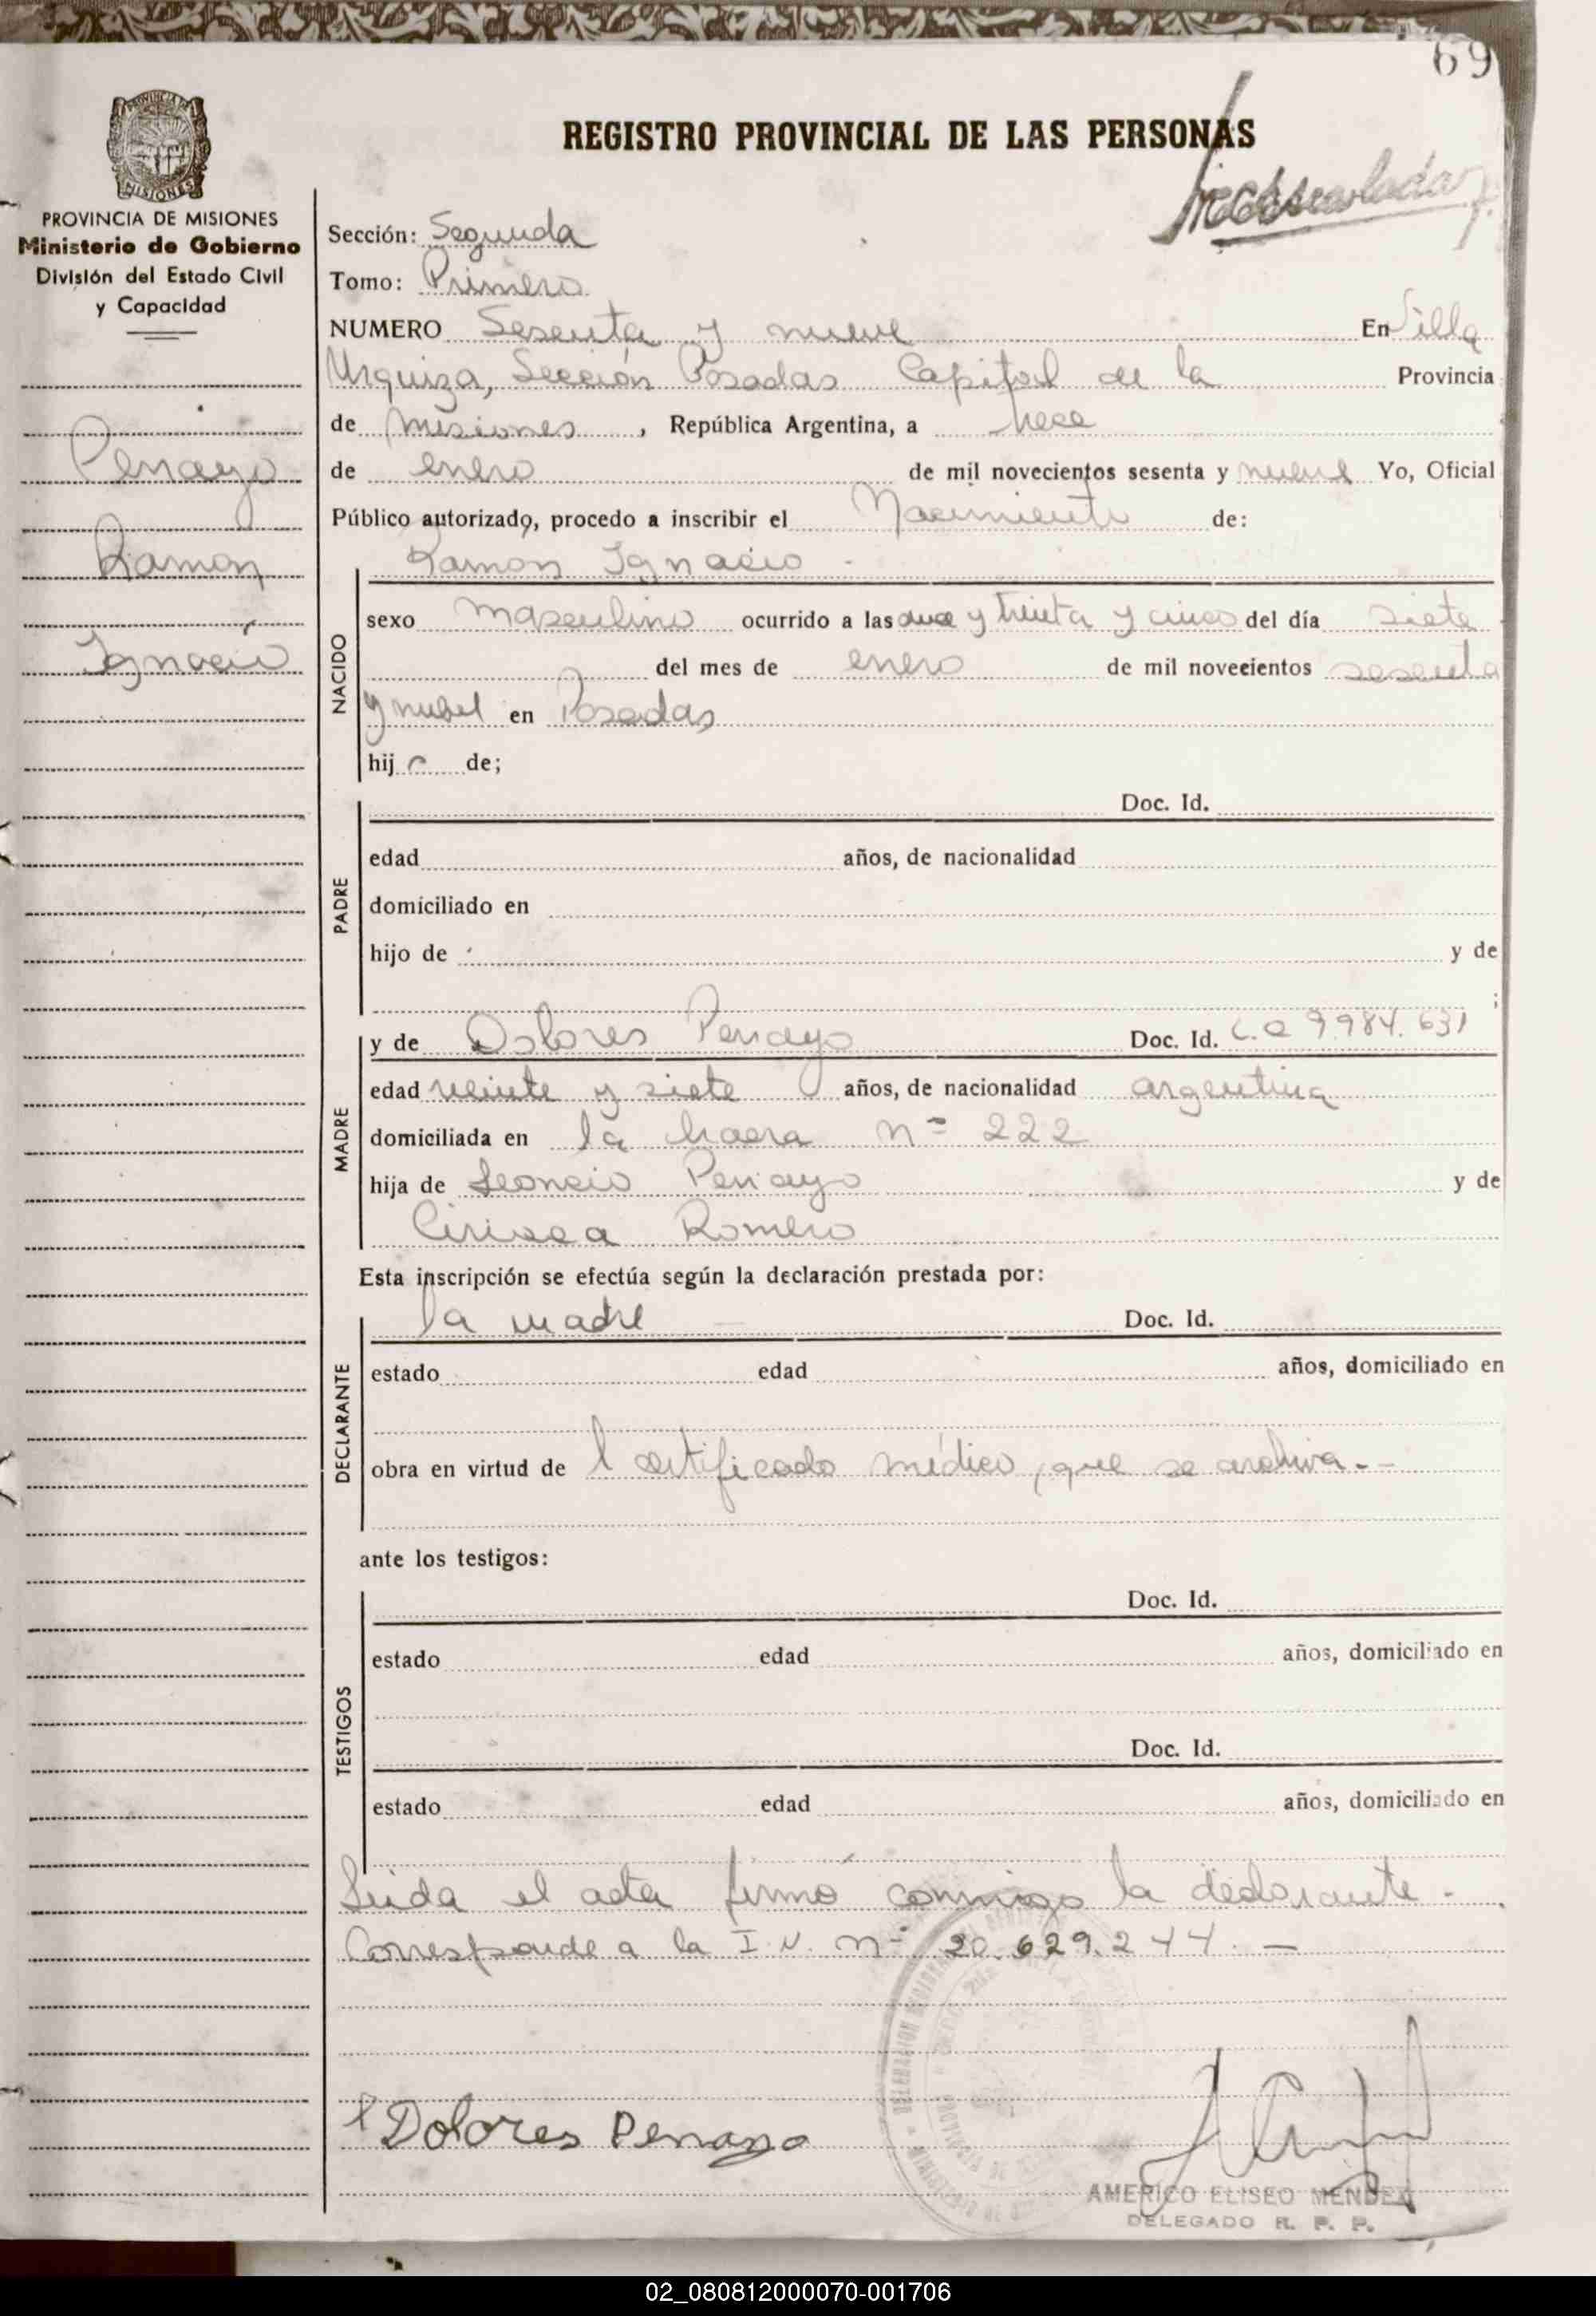 69
REGISTRO PROVINCIAL DE LAS PERSONAS
MISIONES
PROVINCIA DE MISIONES
Ministerio de Gobierno
División del Estado Civil
y Capacidad
Penayo
Ramon
Ignacio
Sección: Segunda
Tomo: Primero
NUMERO Sesenta y nueve En Villa
Urquiza, Sección Posadas Capital de la Provincia
de Misiones, República Argentina, a trece
de enero de mil novecientos sesenta y nueve Yo, Oficial
Público autorizado, procedo a inscribir el Nacimiento de:
Ramon Ignacio
NACIDO
sexo masculino ocurrido a las y treinta y cinco del día siete
del mes de enero de mil novecientos sesenta
y nueve en Posadas
hijo de;
PADRE
Doc. Id.
edad años, de nacionalidad
domiciliado en
hijo de y de
;
MADRE
y de Dolores Penayo Doc. Id. 9.984.631
edad veinte y siete años, de nacionalidad argentina
domiciliada en la nº 222
hija de Leoncio Penayo y de
Romero
Esta inscripción se efectúa según la declaración prestada por:
DECLARANTE
la madre Doc. Id.
estado edad años, domiciliado en
obra en virtud de l certificado médico, que se archiva.-
ante los testigos:
TESTIGOS
Doc. Id.
estado edad años, domiciliado en
Doc. Id.
estado edad años, domiciliado en
Leida el acta firmó conmigo la declarante.
Corresponde a la I.N. nº 20.629.244.—
Dolores Penayo
AMERICO ELISEO MENDEZ
DELEGADO R. P. P.
02_080812000070-001706